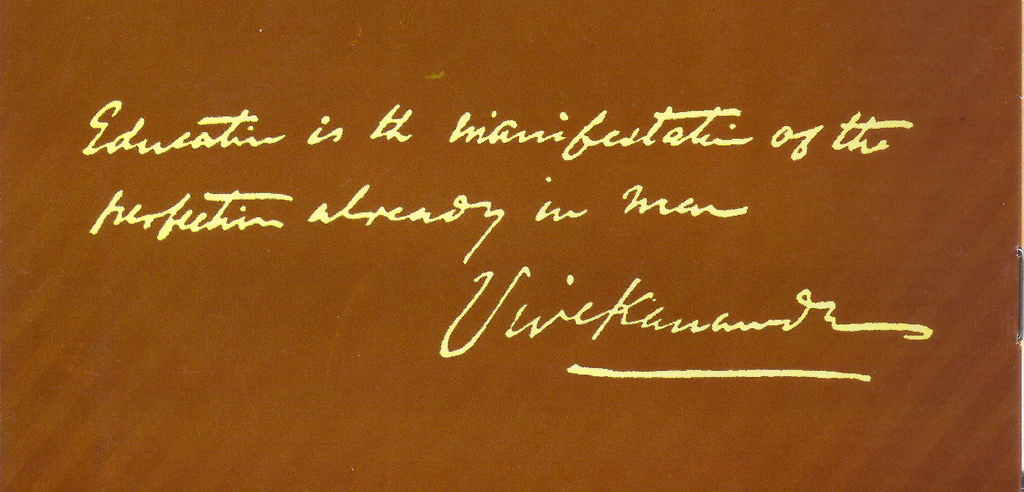 Education is th manifestation of the
perfection already in man
Vivekananda